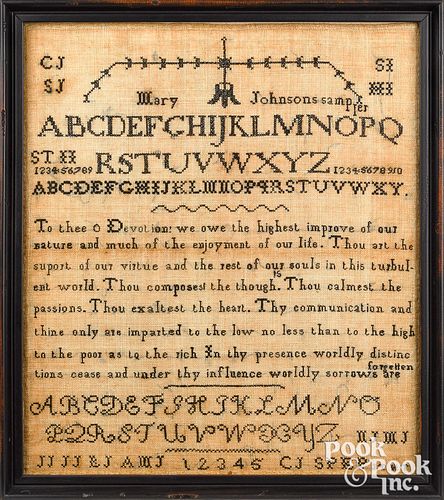 CJ SI
SJ HI
Mary Johnsons sampler
ABCDEFGHIJKLMNOPQ
ST II RSTUVWXYZ
123456789 12345678910
ABCDEFGHIJKLMNOPQRSTUVWXY.
To thee O Devotion: we owe the highest improve of our
nature and much of the enjoyment of our life. Thou art the
suport of our virtue and the rest of our souls in this turbul-
ent world. Thou composest the thoughts. Thou calmest the
passions. Thou exaltest the heart. Thy communication and
thine only are imparted to the low no less than to the high
to the poor as to the rich In thy presence worldly distinc
tions cease and under thy influence worldly sorrows are forgotten
ABCDEFGHIJKLMNO
PQRSTUVWXYZ MJMJ
JJ JJ BJ AMJ 12345 CJ
Pook & Pook Inc.